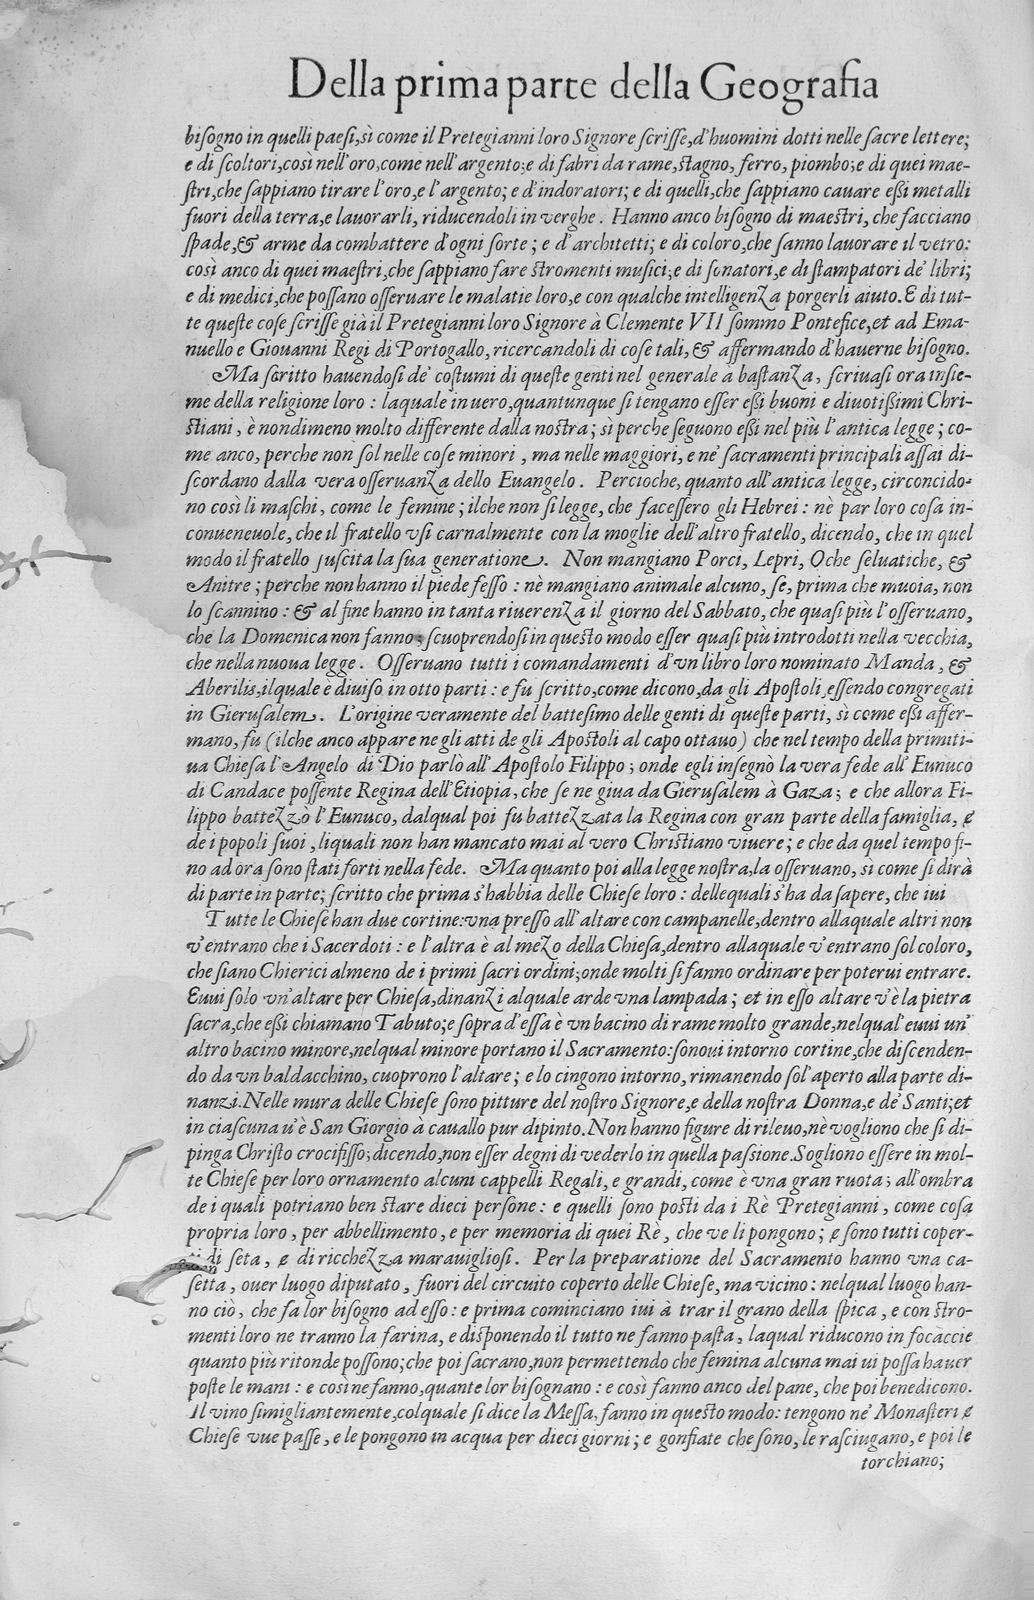 Della prima parte della Geografia
bisogno in quelli paesi, sì come il Pretegianni loro Signore scrisse, d'huomini dotti nelle sacre lettere;
e di scoltori, così nell'oro, come nell'argento; e di fabri da rame, stagno, ferro, piombo; e di quei mae-
stri, che sappiano tirare l'oro, e l'argento; e d'indoratori; e di quelli, che sappiano cauare essi metalli
fuori della terra, e lauorarli, riducendoli in verghe. Hanno anco bisogno di maestri, che facciano
spade, & arme da combattere d'ogni sorte; e d'architetti; e di coloro, che sanno lauorare il vetro:
così anco di quei maestri, che sappiano fare stromenti musici; e di sonatori, e di stampatori de' libri;
e di medici, che possano osseruare le malatie loro, e con qualche intelligenza porgerli aiuto. E di tut-
te queste cose scrisse già il Pretegianni loro Signore à Clemente VII sommo Pontefice, et ad Ema-
nuello e Giouanni Regi di Portogallo, ricercandoli di cose tali, & affermando d'hauerne bisogno.
Ma scritto hauendosi de' costumi di queste genti nel generale à bastanza, scriuasi ora insie-
me della religione loro: laquale in uero, quantunque si tengano esser essi buoni e diuotissimi Chri-
stiani, è nondimeno molto differente dalla nostra; sì perche seguono essi nel più l'antica legge; co-
me anco, perche non sol nelle cose minori, ma nelle maggiori, e ne' sacramenti principali assai di-
scordano dalla vera osseruanza dello Euangelo. Percioche, quanto all'antica legge, circoncido-
no così li maschi, come le femine; ilche non si legge, che facessero gli Hebrei: nè par loro cosa in-
conueneuole, che il fratello vsi carnalmente con la moglie dell'altro fratello, dicendo, che in quel
modo il fratello suscita la sua generatione. Non mangiano Porci, Lepri, Oche seluatiche, &
Anitre; perche non hanno il piede fesso: nè mangiano animale alcuno, se, prima che muoia, non
lo scannino: & al fine hanno in tanta riuerenza il giorno del Sabbato, che quasi più l'osseruano,
che la Domenica non fanno; scuoprendosi in questo modo esser quasi più introdotti nella vecchia,
che nella nuoua legge. Osseruano tutti i comandamenti d'vn libro loro nominato Manda, &
Aberilis, ilquale è diuiso in otto parti: e fu scritto, come dicono, da gli Apostoli, essendo congregati
in Gierusalem. L'origine veramente del battesimo delle genti di queste parti, sì come essi affer-
mano, fu (ilche anco appare ne gli atti de gli Apostoli al capo ottauo) che nel tempo della primiti-
ua Chiesa l'Angelo di Dio parlò all'Apostolo Filippo; onde egli insegnò la vera fede all'Eunuco
di Candace possente Regina dell'Etiopia, che se ne giua da Gierusalem à Gaza; e che allora Fi-
lippo battezzò l'Eunuco, dalqual poi fu battezzata la Regina con gran parte della famiglia, e
de i popoli suoi, liquali non han mancato mai al vero Christiano viuere; e che da quel tempo fi-
no ad ora sono stati forti nella fede. Ma quanto poi alla legge nostra, la osseruano, sì come si dirà
di parte in parte; scritto che prima s'habbia delle Chiese loro: dellequali s'ha da sapere, che iui
Tutte le Chiese han due cortine: vna presso all'altare con campanelle, dentro allaquale altri non
v'entrano che i Sacerdoti: e l'altra è al mezo della Chiesa, dentro allaquale v'entrano sol coloro,
che siano Chierici almeno de i primi sacri ordini; onde molti si fanno ordinare per poterui entrare.
Euui solo vn'altare per Chiesa, dinanzi alquale arde vna lampada; et in esso altare v'è la pietra
sacra, che essi chiamano Tabuto; e sopra d'essa è vn bacino di rame molto grande, nelqual' euui un'
altro bacino minore, nelqual minore portano il Sacramento: sonoui intorno cortine, che discenden-
do da vn baldacchino, cuoprono l'altare; e lo cingono intorno, rimanendo sol' aperto alla parte di-
nanzi. Nelle mura delle Chiese sono pitture del nostro Signore, e della nostra Donna, e de' Santi; et
in ciascuna u'è San Giorgio à cauallo pur dipinto. Non hanno figure di rileuo, nè vogliono che si di-
pinga Christo crocifisso; dicendo, non esser degni di vederlo in quella passione. Sogliono essere in mol-
te Chiese per loro ornamento alcuni cappelli Regali, e grandi, come è vna gran ruota; all'ombra
de i quali potriano ben stare dieci persone: e quelli sono posti da i Rè Pretegianni, come cosa
propria loro, per abbellimento, e per memoria di quei Rè, che ve li pongono; e sono tutti coper-
ti di seta, e di ricchezza marauigliosi. Per la preparatione del Sacramento hanno vna ca-
setta, ouer luogo diputato, fuori del circuito coperto delle Chiese, ma vicino: nelqual luogo han-
no ciò, che fa lor bisogno ad esso: e prima cominciano iui à trar il grano della spica, e con stro-
menti loro ne tranno la farina, e disponendo il tutto ne fanno pasta, laqual riducono in focaccie
quanto più ritonde possono; che poi sacrano, non permettendo che femina alcuna mai ui possa hauer
poste le mani: e così ne fanno, quante lor bisognano: e così fanno anco del pane, che poi benedicono.
Il vino simigliantemente, colquale si dice la Messa, fanno in questo modo: tengono ne' Monasteri e
Chiese vue passe, e le pongono in acqua per dieci giorni; e gonfiate che sono, le rasciugano, e poi le
torchiano;